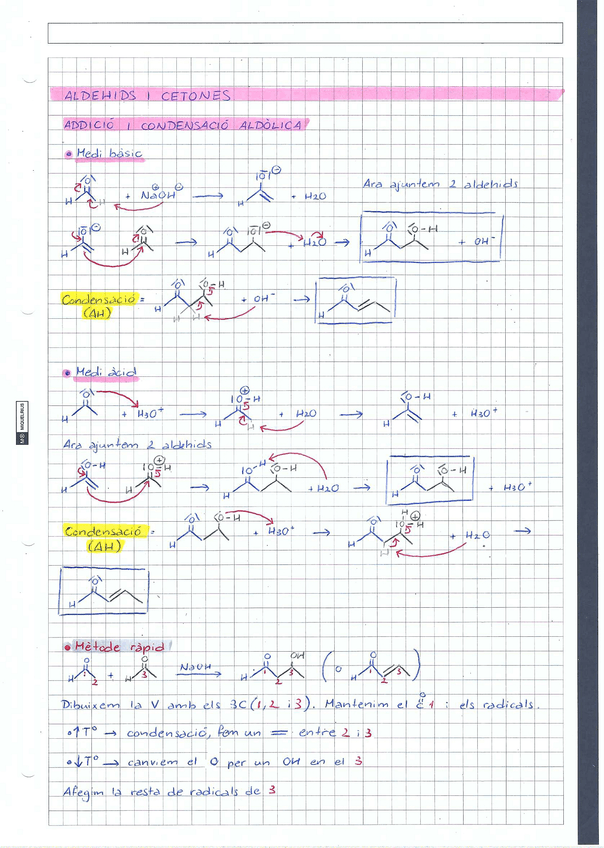 ALDEHIDS I CETONES
ADDICIÓ I CONDENSACIÓ ALDÒLICA
• Medi bàsic
+ NaOH → + H2O Ara ajuntem 2 aldehids
→ + H2O → + OH⁻
Condensació = + OH⁻ →
(ΔH)
• Medi àcid
+ H3O⁺ → + H2O → + H3O⁺
Ara ajuntem 2 aldehids
→ + H2O → + H3O⁺
Condensació = + H3O⁺ → + H2O →
(ΔH)
• Mètode ràpid
+ NaOH
Dibuixem la V amb els 3C (1, 2 i 3). Mantenim el C 1 i els radicals.
• ↑Tº → condensació, fem un = entre 2 i 3
• ↓Tº → canviem el O per un OH en el 3
Afegim la resta de radicals de 3
MIQUELRIUS